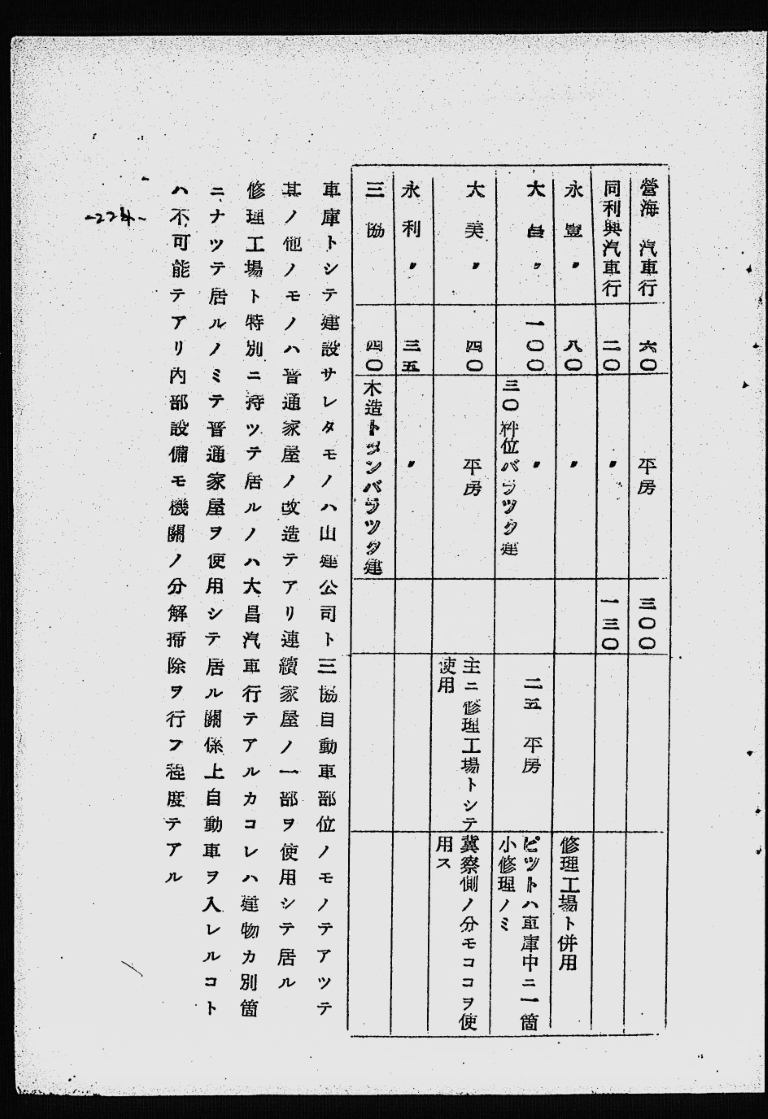 營海汽車行 六〇 平房 三〇〇
同利興汽車行 二〇 〃 一三〇
永豐〃 八〇 〃 修理工場ト併用
大昌〃 一〇〇 〃 三〇粁位バラツク建 二五 平房 ピツトハ車庫中ニ一箇小修理ノミ
大美〃 四〇 平房 主ニ修理工場トシテ使用 冀察側ノ分モココヲ使用ス
永利〃 三五 〃
三協 四〇 木造トタンバラツク建
車庫トシテ建設サレタモノハ山建公司ト三協自動車部位ノモノテアツテ
其ノ他ノモノハ普通家屋ノ改造テアリ連續家屋ノ一部ヲ使用シテ居ル
修理工場ト特別ニ持ツテ居ルノハ大昌汽車行テアルカコレハ建物カ別箇
ニナツテ居ルノミテ普通家屋ヲ使用シテ居ル關係上自動車ヲ入レルコト
ハ不可能テアリ內部設備モ機關ノ分解掃除ヲ行フ程度テアル
-224-